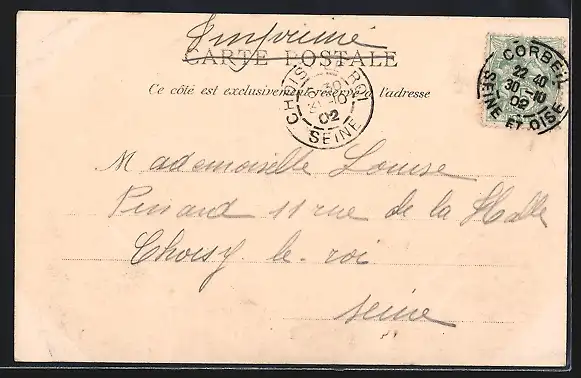 Imprimé
CARTE POSTALE
Ce côté est exclusivement réservé à l'adresse
CHOISY LE ROI
10
02
SEINE
CORBEIL
22 40
30 10
02
SEINE ET OISE
Mademoiselle Louise
Pinard 11 rue de la Halle
Choisy-le-roi
seine